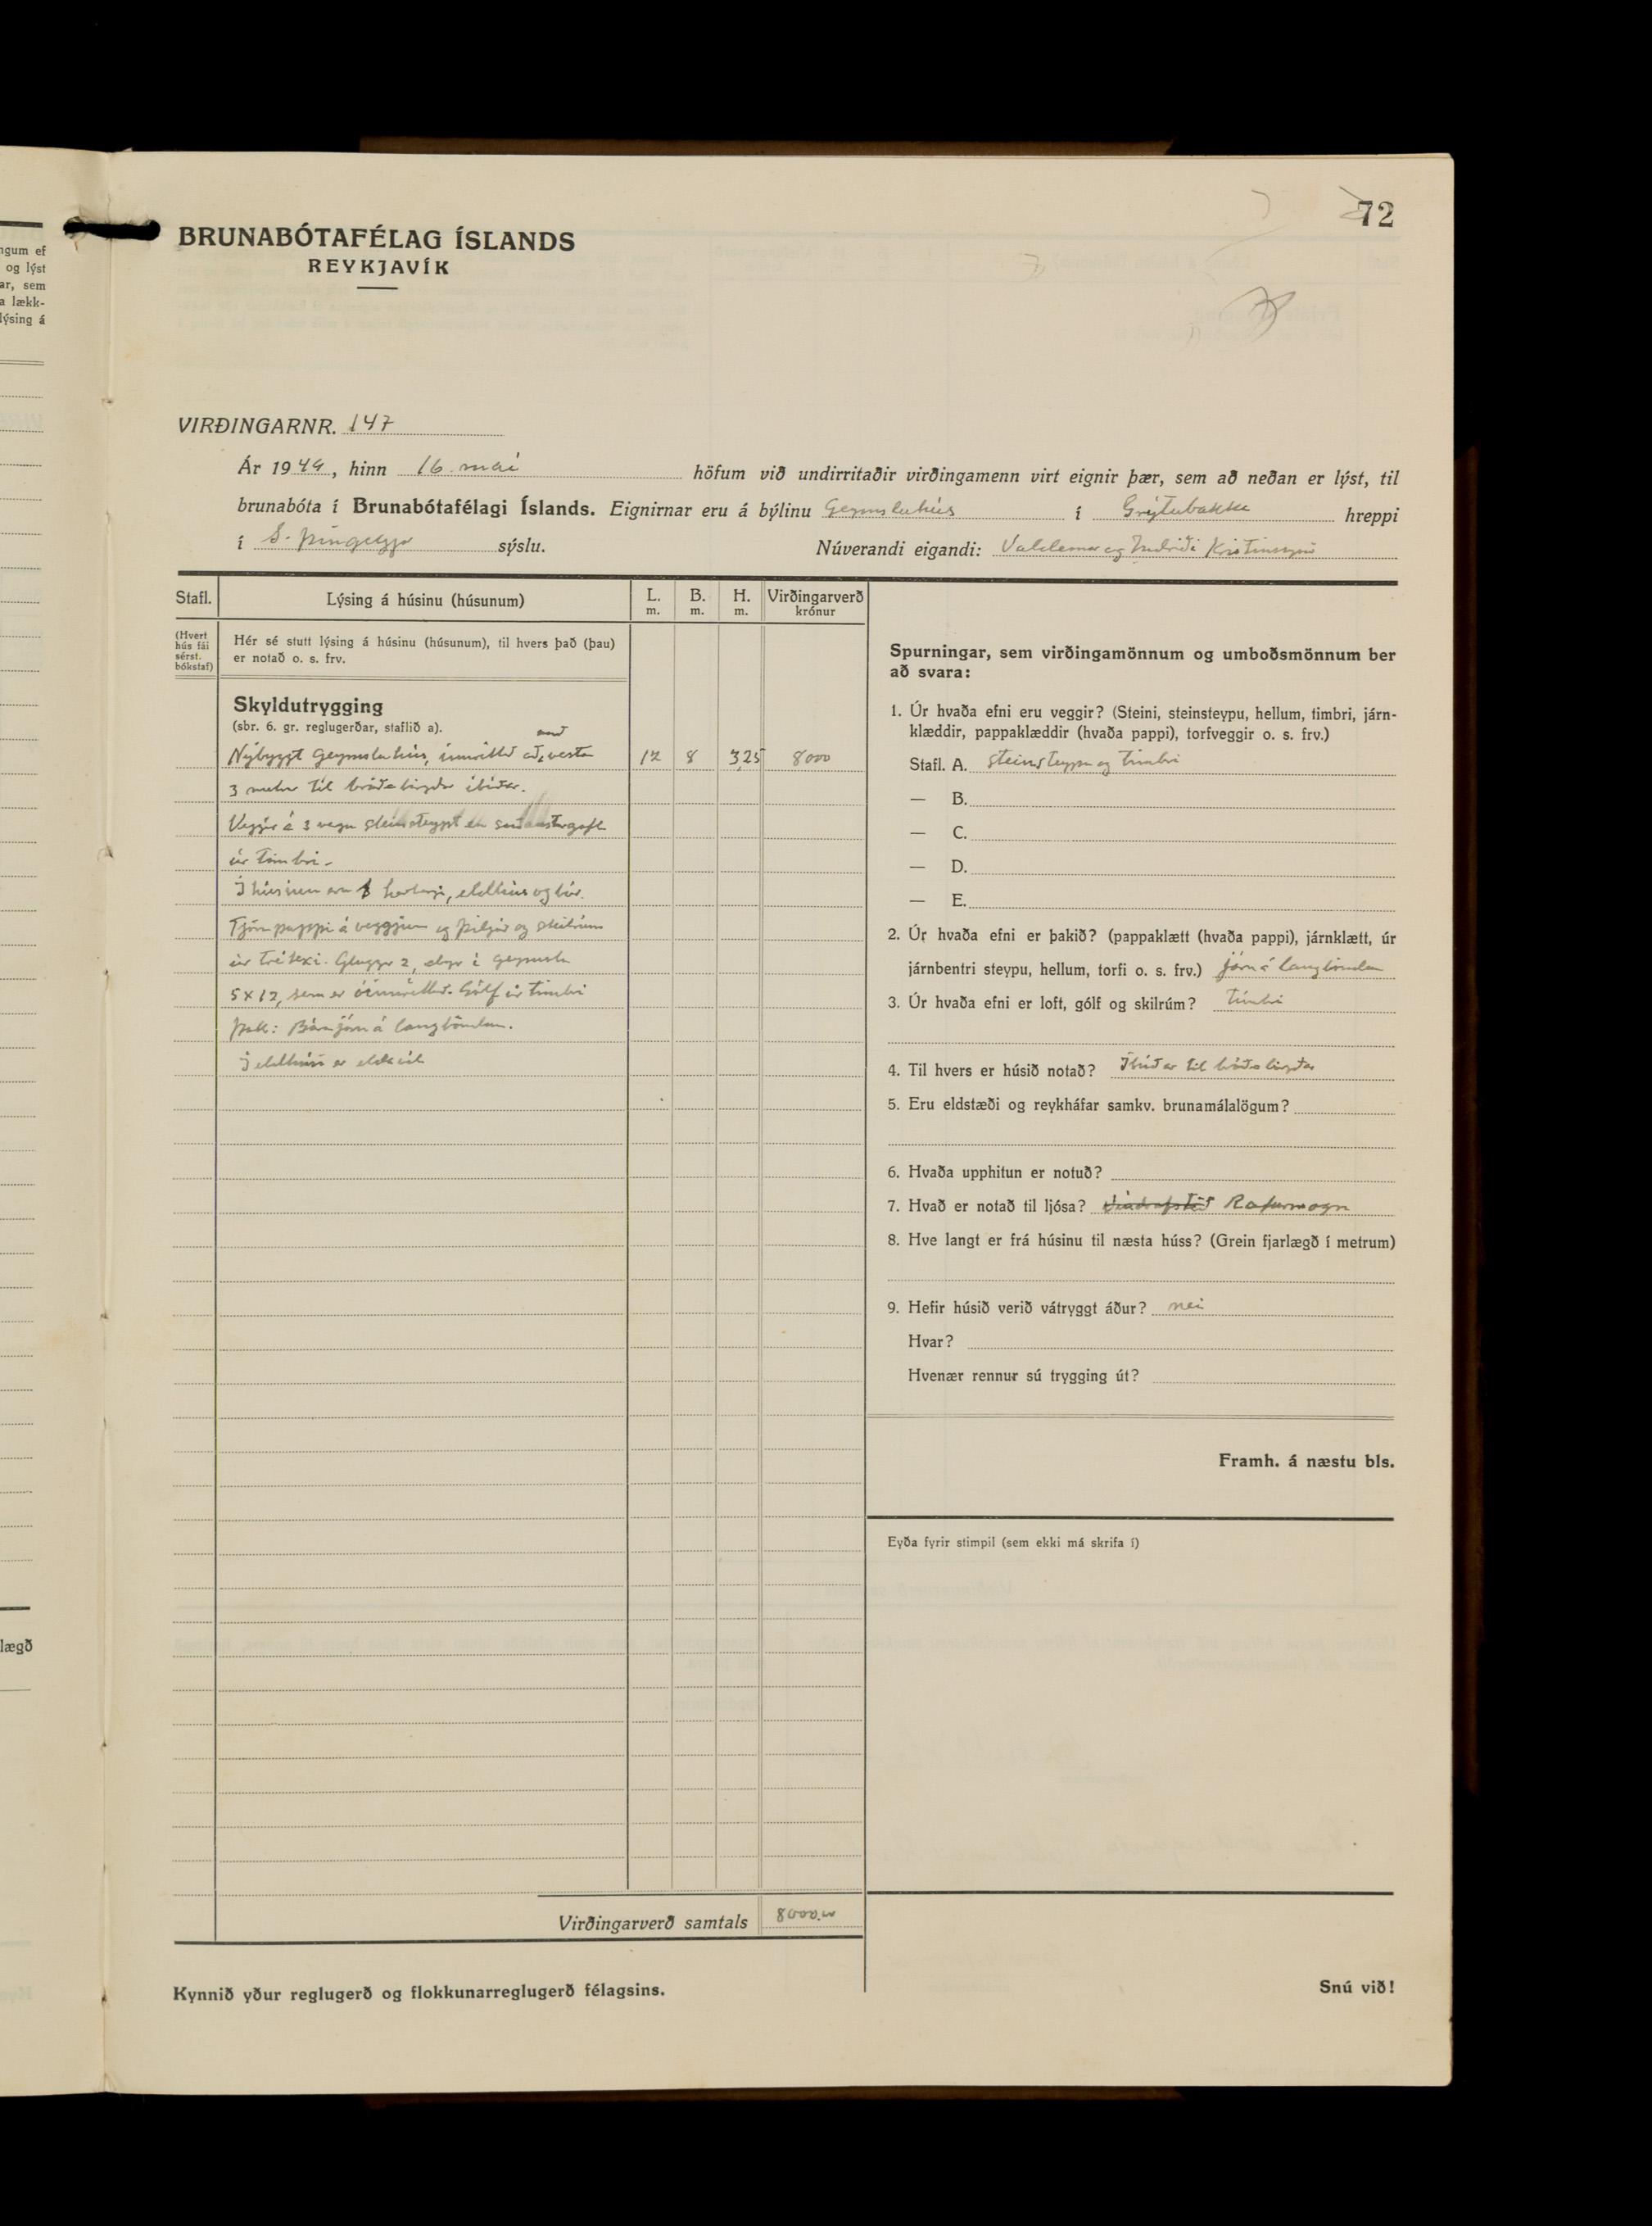 72
BRUNABÓTAFÉLAG ÍSLANDS
REYKJAVÍK
VIRÐINGARNR. 147
Ár 1949, hinn 16. maí höfum við undirritaðir virðingamenn virt eignir þær, sem að neðan er lýst, til
brunabóta í Brunabótafélagi Íslands. Eignirnar eru á býlinu Geymsluhús í Grýtubakka hreppi
í S. Þingeyja sýslu. Núverandi eigandi: Valdemar og Indriði Kristinssynir
Stafl. Lýsing á húsinu (húsunum) L. m. B. m. H. m. Virðingarverð krónur
(Hvert hús fái sérst. bókstaf)
Hér sé stutt lýsing á húsinu (húsunum), til hvers það (þau)
er notað o. s. frv.
Skyldutrygging
(sbr. 6. gr. reglugerðar, staflið a).
Nýbyggt Geymsluhús, innréttað að vesta 12 8 3,25 8000
3 metra til bráðabirgðar íbúðar.
Veggir á 3 vegu steinsteypt en suðausturgafl
úr timbri.
Í húsinu eru herbergi, eldhús og búr.
Tjörupappi á veggjum og þiljað og skilrúm
úr trétexi. Gluggar 2, dyr í geymslu
5x12, sem er óinnréttað. Gólf úr timbri
Þak: Bárujárn á langböndum.
Í eldhúsi er eldavél
Virðingarverð samtals 8000.00
Kynnið yður reglugerð og flokkunarreglugerð félagsins.
Spurningar, sem virðingamönnum og umboðsmönnum ber
að svara:
1. Úr hvaða efni eru veggir? (Steini, steinsteypu, hellum, timbri, járn-
klæddir, pappaklæddir (hvaða pappi), torfveggir o. s. frv.)
Stafl. A. steinsteypu og timbri
— B.
— C.
— D.
— E.
2. Úr hvaða efni er þakið? (pappaklætt (hvaða pappi), járnklætt, úr
járnbentri steypu, hellum, torfi o. s. frv.) járn á langböndum
3. Úr hvaða efni er loft, gólf og skilrúm? timbri
4. Til hvers er húsið notað? Íbúðar til bráðabirgðar
5. Eru eldstæði og reykháfar samkv. brunamálalögum?
6. Hvaða upphitun er notuð?
7. Hvað er notað til ljósa? Rafurmagn
8. Hve langt er frá húsinu til næsta húss? (Grein fjarlægð í metrum)
9. Hefir húsið verið vátryggt áður? nei
Hvar?
Hvenær rennur sú trygging út?
Framh. á næstu bls.
Eyða fyrir stimpil (sem ekki má skrifa í)
Snú við!